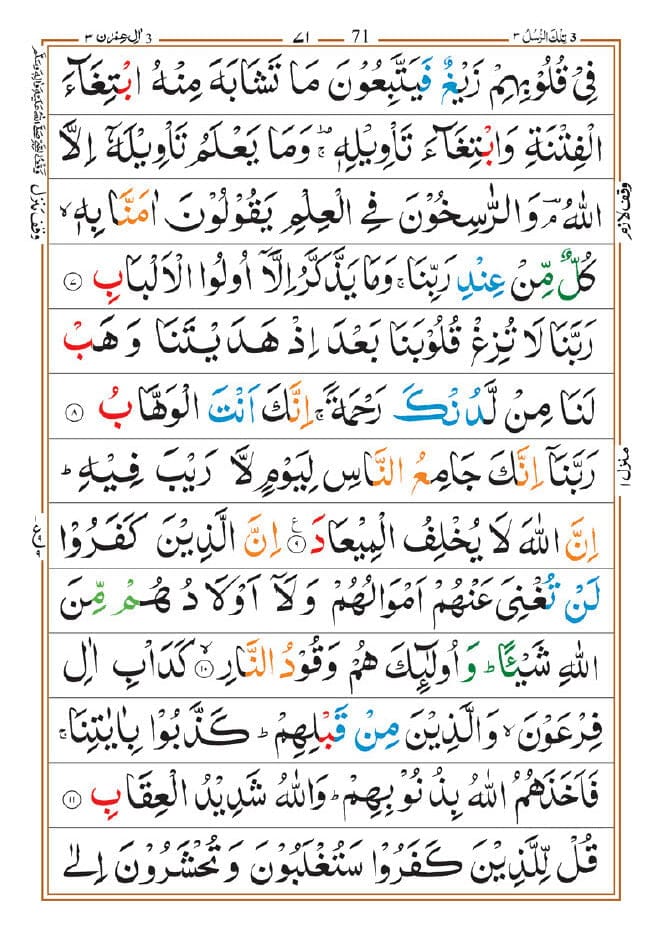 3 تِلْكَ الرُّسُلُ ٣
71 — ٧١
3 اٰلِ عِمْرٰن ٣
فِیْ قُلُوْبِهِمْ زَیْغٌ فَیَتَّبِعُوْنَ مَا تَشَابَهَ مِنْهُ ابْتِغَآءَ
الْفِتْنَةِ وَابْتِغَآءَ تَاْوِیْلِهٖ ۚ وَمَا یَعْلَمُ تَاْوِیْلَهٗۤ اِلَّا
اللّٰهُ ۘ وَالرّٰسِخُوْنَ فِی الْعِلْمِ یَقُوْلُوْنَ اٰمَنَّا بِهٖ ۙ
كُلٌّ مِّنْ عِنْدِ رَبِّنَا ۚ وَمَا یَذَّكَّرُ اِلَّاۤ اُولُوا الْاَلْبَابِ ٧
رَبَّنَا لَا تُزِغْ قُلُوْبَنَا بَعْدَ اِذْ هَدَیْتَنَا وَهَبْ
لَنَا مِنْ لَّدُنْكَ رَحْمَةً ۚ اِنَّكَ اَنْتَ الْوَهَّابُ ٨
رَبَّنَاۤ اِنَّكَ جَامِعُ النَّاسِ لِیَوْمٍ لَّا رَیْبَ فِیْهِ ؕ
اِنَّ اللّٰهَ لَا یُخْلِفُ الْمِیْعَادَ ٩ ع اِنَّ الَّذِیْنَ كَفَرُوْا
لَنْ تُغْنِیَ عَنْهُمْ اَمْوَالُهُمْ وَلَاۤ اَوْلَادُهُمْ مِّنَ
اللّٰهِ شَیْـًٔا ؕ وَاُولٰٓئِكَ هُمْ وَقُوْدُ النَّارِ ١٠ ۙ كَدَاْبِ اٰلِ
فِرْعَوْنَ ۙ وَالَّذِیْنَ مِنْ قَبْلِهِمْ ؕ كَذَّبُوْا بِاٰیٰتِنَا ۚ
فَاَخَذَهُمُ اللّٰهُ بِذُنُوْبِهِمْ ؕ وَاللّٰهُ شَدِیْدُ الْعِقَابِ ١١
قُلْ لِّلَّذِیْنَ كَفَرُوْا سَتُغْلَبُوْنَ وَتُحْشَرُوْنَ اِلٰی
وقف لازم
منزل ١
وقف منزل